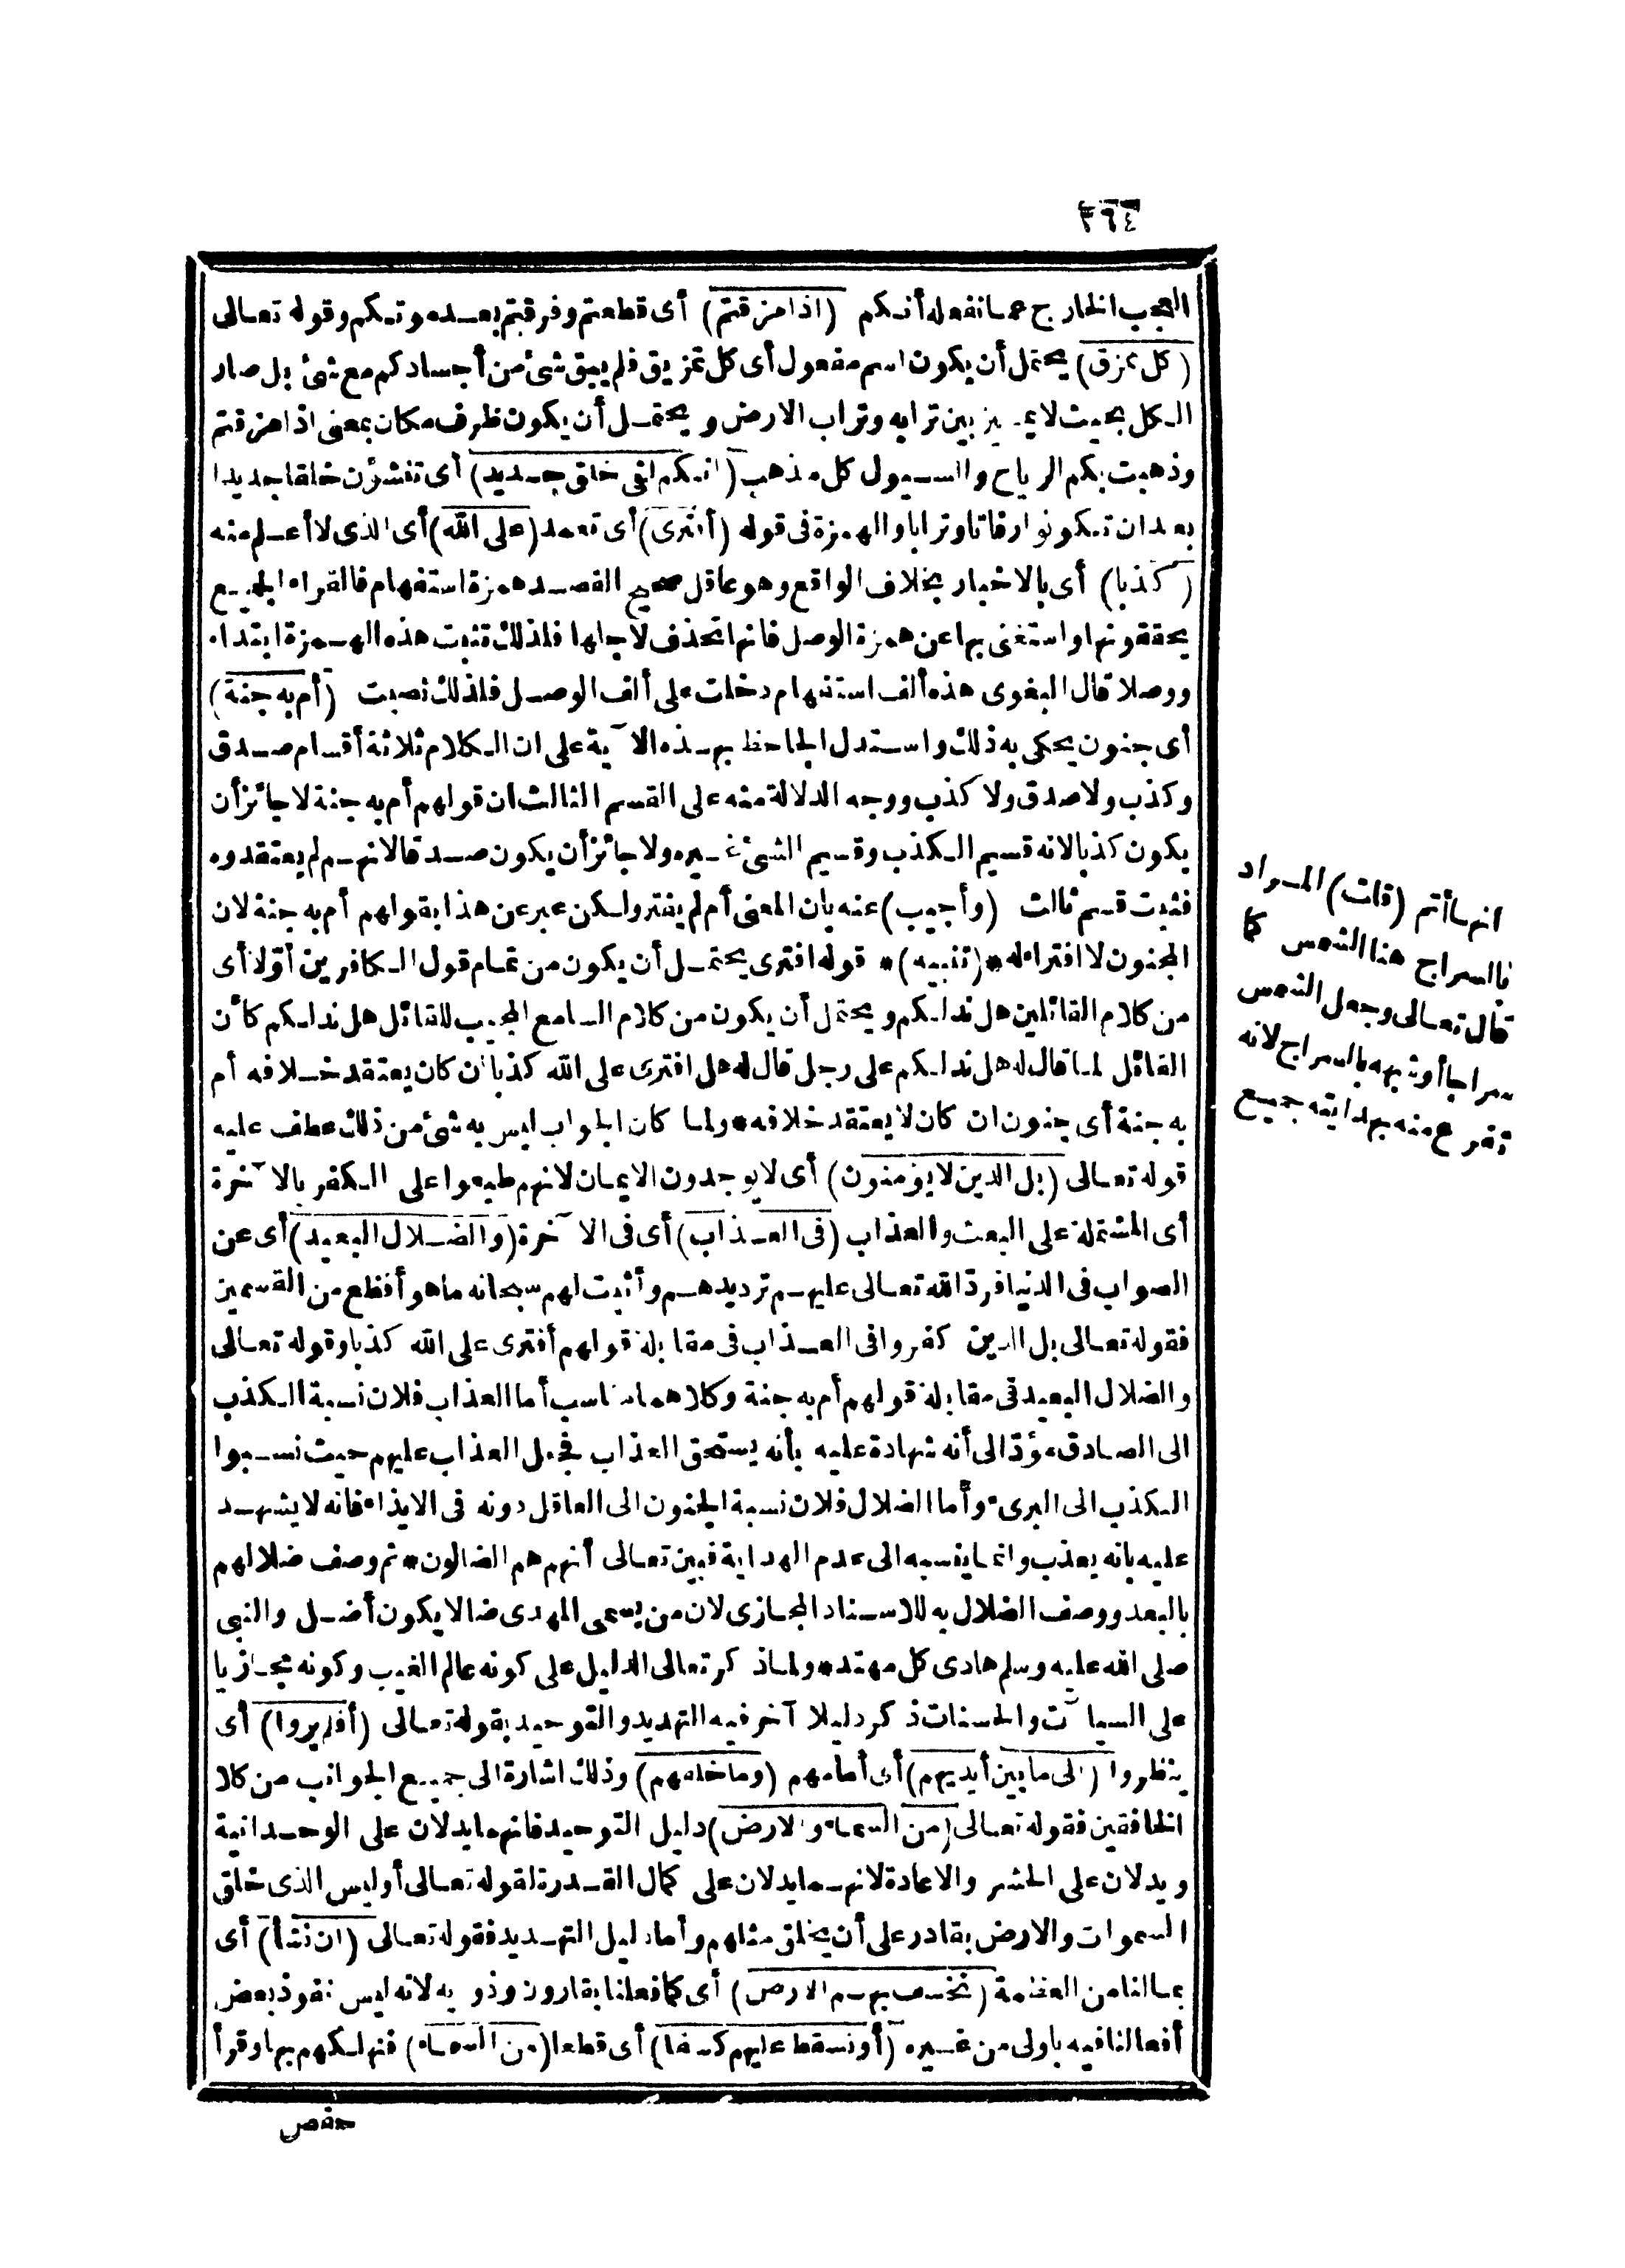 ٣٦٤
العجب الخارج عما نفعله أنكم (اذا مزقتم) أى قطعتم وفرقتم بعد موتكم وقوله تعالى
(كل ممزق) يحتمل أن يكون اسم مفعول أى كل تمزيق فلم يبق شئ من أجسادكم مع شئ بل صار
الكل بحيث لا يميز بين ترابه وتراب الارض ويحتمل أن يكون ظرف مكان بمعنى اذا مزقتم
وذهبت بكم الرياح والسيول كل مذهب (انكم لفى خلق جديد) أى تنشؤن خلقا جديدا
بعد ان تكونوا رفاتا وترابا والهمزة فى قوله (أفترى) أى تعمد (على الله) أى الذى لا أعلم منه
(كذبا) أى بالاخبار بخلاف الواقع وهو عاقل صحيح القصد همزة استفهام فالقراء الجميع
يحققونها واستغنى بها عن همزة الوصل فانها تحذف لاجلها فلذلك تثبت هذه الهمزة ابتداء
ووصلا قال البغوى هذه ألف استفهام دخلت على ألف الوصل فلذلك نصبت (أم به جنة)
أى جنون يحكى به ذلك واستدل الجاحظ بهذه الآية على ان الكلام ثلاثة أقسام صدق
وكذب ولا صدق ولا كذب ووجه الدلالة منه على القسم الثالث ان قولهم أم به جنة لا جائز أن
يكون كذبا لانه قسيم الكذب وقسيم الشئ غيره ولا جائز أن يكون صدقا لانهم لم يعتقدوه
فثبت قسم ثالث (وأجيب) عنه بان المعنى أم لم يفتر ولكن عبر عن هذا بقولهم أم به جنة لان
المجنون لا افتراء له * (تنبيه) * قوله افترى يحتمل أن يكون من تمام قول الكافرين أوّلا أى
من كلام القائلين هل ندلكم ويحتمل أن يكون من كلام السامع المجيب للقائل هل ندلكم كأن
القائل لما قال له هل ندلكم على رجل قال له هل افترى على الله كذبا ان كان يعتقد خلافه أم
به جنة أى جنون ان كان لا يعتقد خلافه * ولما كان الجواب ليس به شئ من ذلك عطف عليه
قوله تعالى (بل الذين لا يؤمنون) أى لا يوجدون الايمان لانهم طبعوا على الكفر بالآخرة
أى المشتملة على البعث والعذاب (فى العذاب) أى فى الآخرة (والضلال البعيد) أى عن
الصواب فى الدنيا فردّ الله تعالى عليهم ترديدهم وأثبت لهم سبحانه ما هو أفظع من القسمين
فقوله تعالى بل الذين كفروا فى العذاب فى مقابلة قولهم أفترى على الله كذبا وقوله تعالى
والضلال البعيد فى مقابلة قولهم أم به جنة وكلاهما مناسب أما العذاب فلان نسبة الكذب
الى الصادق مؤدّ الى أنه شهادة عليه بأنه يستحق العذاب فجعل العذاب عليهم حيث نسبوا
الكذب الى البرىء وأما الضلال فلان نسبة الجنون الى العاقل دونه فى الايذاء فانه لا يشهد
عليه بانه يعذب وانما ينسبه الى عدم الهداية فبين تعالى أنهم هم الضالون * ثم وصف ضلالهم
بالبعد ووصف الضلال به للاسناد المجازى لان من يسمى المهدى ضالا يكون أضل والنبى
صلى الله عليه وسلم هادى كل مهتد * ولما ذكر تعالى الدليل على كونه عالم الغيب وكونه مجازيا
على السيآت والحسنات ذكر دليلا آخر فيه التهديد والتوحيد بقوله تعالى (أفلم يروا) أى
ينظروا (الى ما بين أيديهم) أى أمامهم (وما خلفهم) وذلك اشارة الى جميع الجوانب من كلا
الخافقين فقوله تعالى (من السماء والارض) دليل التوحيد فانهما يدلان على الوحدانية
ويدلان على الحشر والاعادة لانهما يدلان على كمال القدرة لقوله تعالى أوليس الذى خلق
السموات والارض بقادر على أن يخلق مثلهم وأما دليل التهديد فقوله تعالى (ان نشأ) أى
بما لنا من العظمة (نخسف بهم الارض) أى كما فعلنا بقارون وذويه لانه ليس نفوذ بعض
أفعالنا فيه باولى من غيره (أو نسقط عليهم كسفا) أى قطعا (من السماء) فنهلكهم بها وقرأ
حفص
انهما أتم (قلت) المراد
بالسراج هنا الشمس كما
قال تعالى وجعل الشمس
سراجا أو شبهه بالسراج لانه
تفرع منه بهدايته جميع